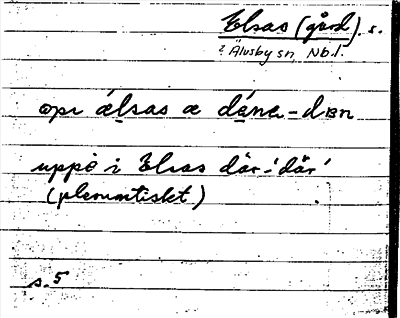 Elsas (gård). s.
i Älvsby sn, Nb.l.
opι ælsas æ dǽna - dæn
uppe i Elsas där-'där'
(pleonastiskt)
s. 5